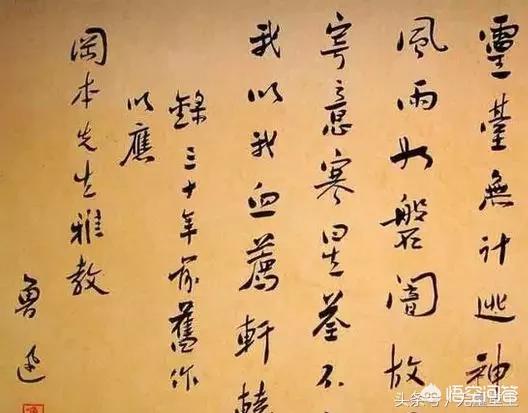 靈臺無計逃神
風雨如磐闇故
寄意寒星荃不
我以我血薦軒轅
錄三十年前舊作
以應
岡本先生雅教
魯迅
头条号
悟空问答